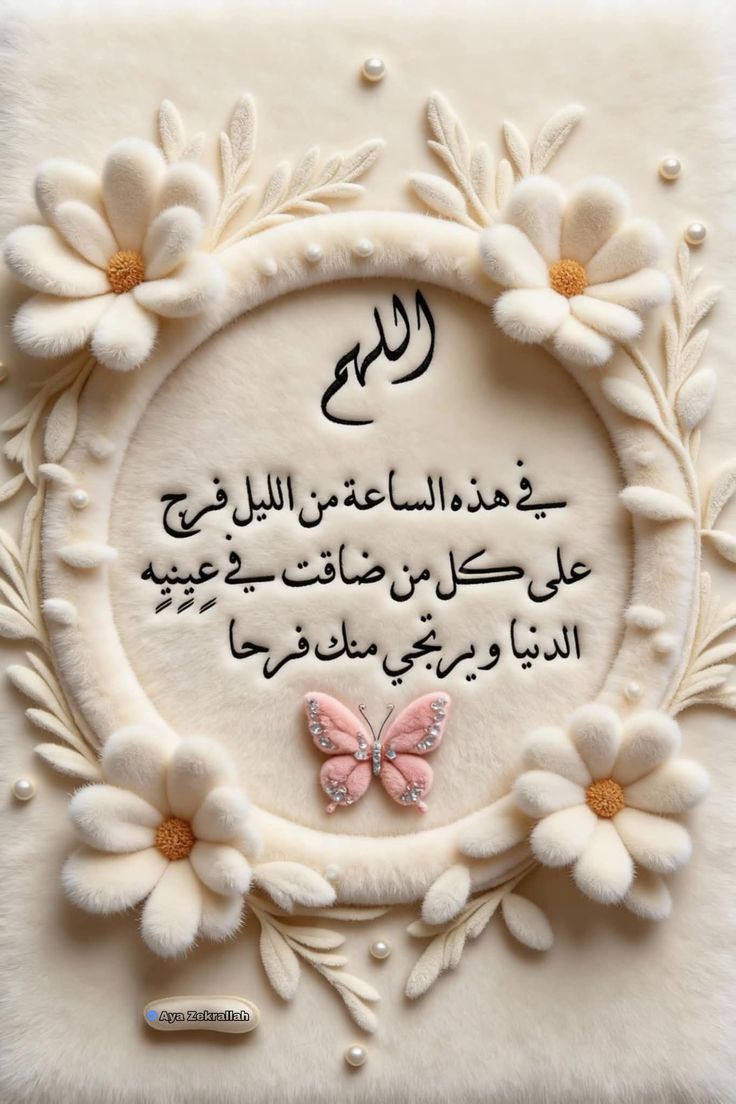 اللهم
في هذه الساعة من الليل فرج
على كل من ضاقت في عينيه
الدنيا ويرتجي منك فرحا
Aya Zekrallah